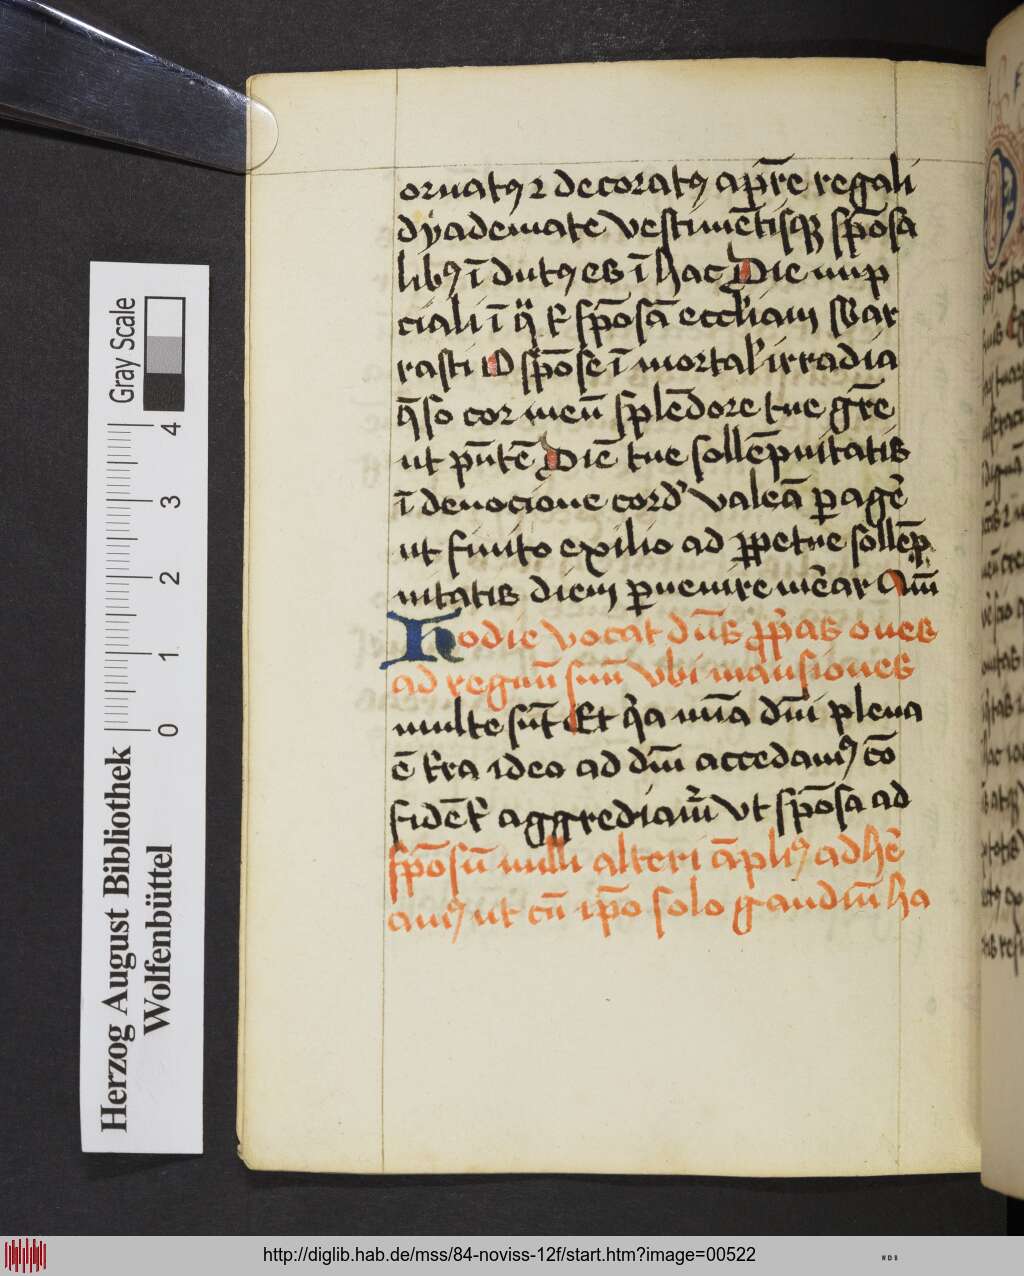 ornatꝯ ⁊ decoratꝯ a pr̄e regali
dyademate vestimētisqꝫ spōsa
libꝯ īdutꝯ es ī hac Die nup
ciali ī q̈ t͛ spōsā eccl͛iam s͛ar
rasti O spōse ī mortal͛ irradia
q̄so cor meū splēdore tue gr̄e
ut pn̄tē Diē tue sollēpnitatis
ī deuocione cord͛ valeā ꝑagē
ut finito exilio ad ꝑpetue sollēp
nitatis diem ꝑuenire mēar Am̄
Hodie vocat dūs ꝓp̄as oues
ad regnū suū vbi mansiones
multe sūt Et q̇a nūa dm̄i plena
ē tr̄a ideo ad dm̄ accedamꝯ cō
fidēt͛ aggrediam̄ vt spōsa ad
spōsū nulli alteri āpliꝯ adhē
amꝯ ut cū ip̄o solo gaudiū ha
Gray Scale
0 1 2 3 4
Herzog August Bibliothek
Wolfenbüttel
http://diglib.hab.de/mss/84-noviss-12f/start.htm?image=00522